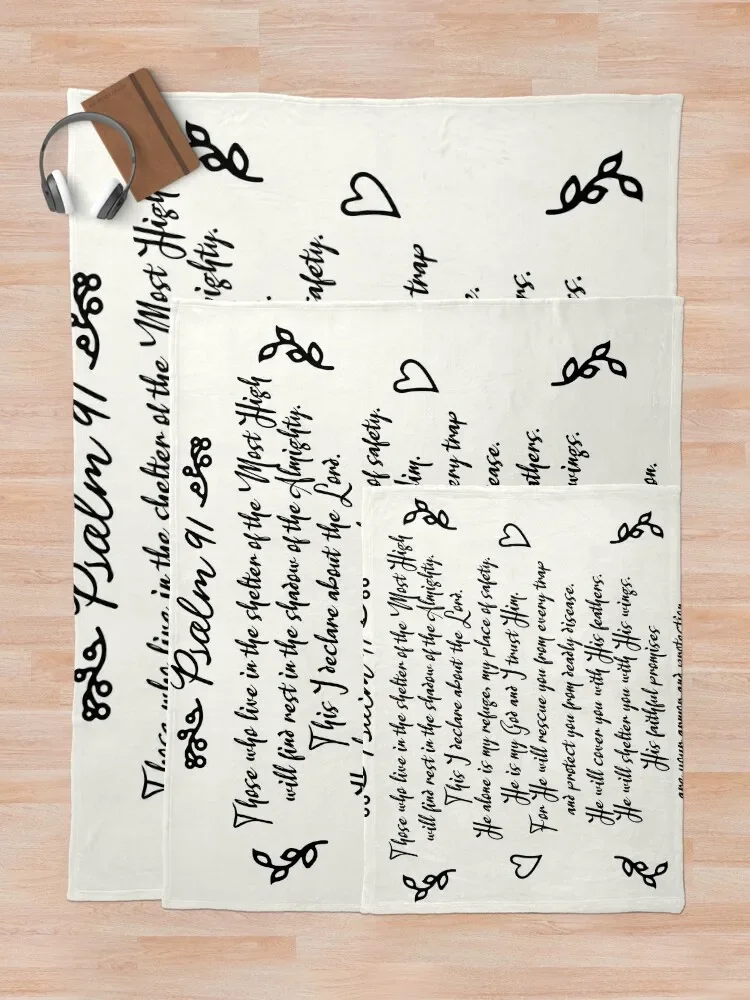 Psalm 91
Those who live in the shelter of the Most High
ighty.
afety.
trap
e.
rs.
gs.
Psalm 91
Those who live in the shelter of the Most High
will find rest in the shadow of the Almighty.
This I declare about the Lord.
of safety.
Him.
ery trap
ease.
athers.
wings.
on.
Psalm 91
Those who live in the shelter of the Most High
will find rest in the shadow of the Almighty.
This I declare about the Lord.
He alone is my refuge, my place of safety.
He is my God and I trust Him.
For He will rescue you from every trap
and protect you from deadly disease.
He will cover you with His feathers.
He will shelter you with His wings.
His faithful promises
are your armor and protection